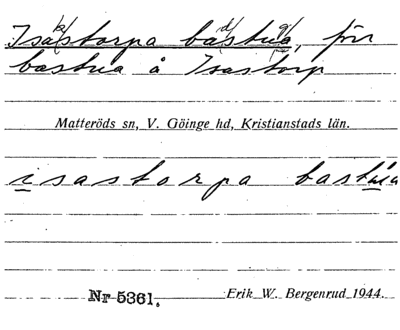 Isastorpa bastua, för
bastua å Isastorp
Matteröds sn, V. Göinge hd, Kristianstads län.
isastorpa bastua
Nr 5361.
Erik W. Bergenrud 1944.